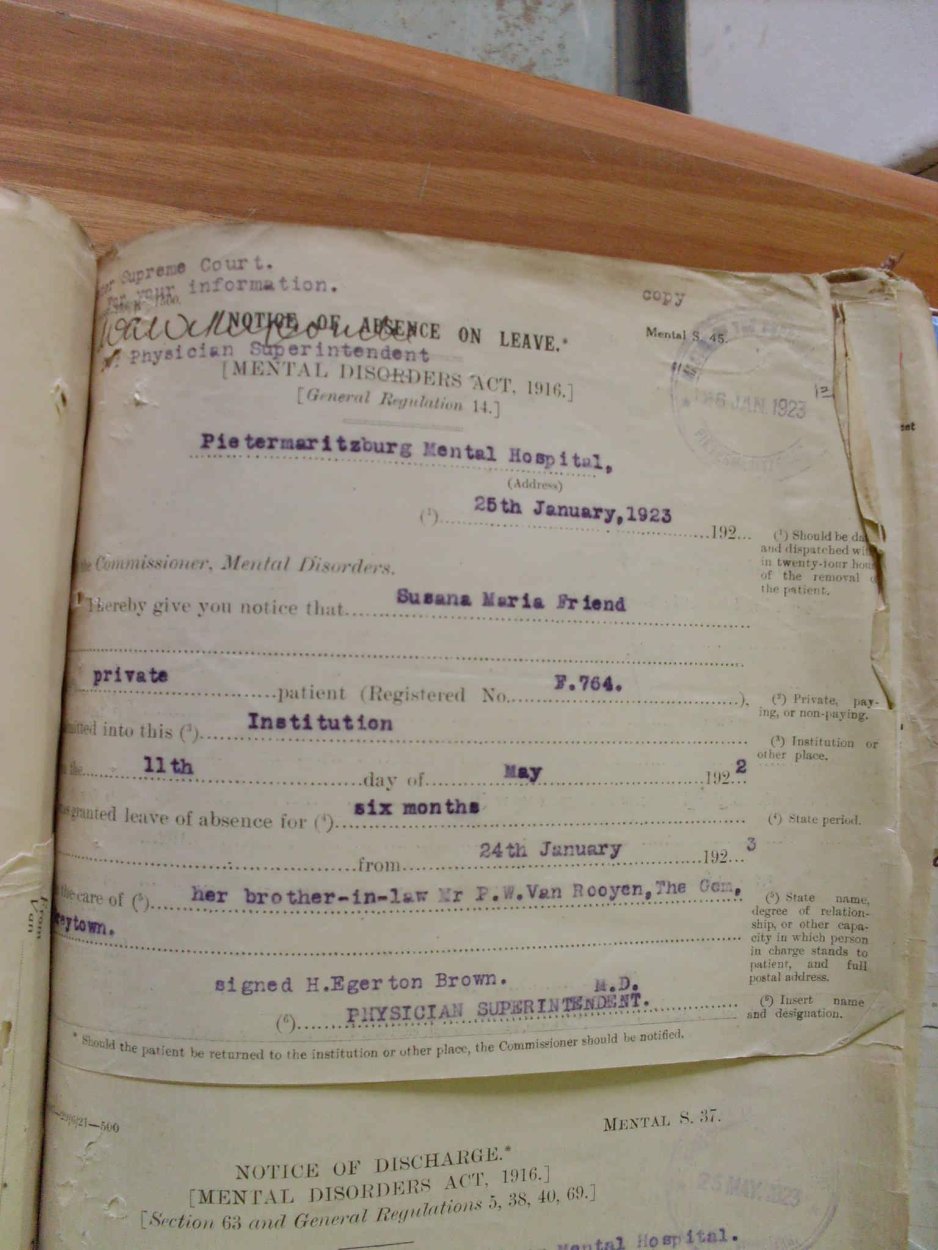 Supreme Court.
your information.
copy
NOTICE OF ABSENCE ON LEAVE.*
Mental S. 45.
Physician Superintendent
[MENTAL DISORDERS ACT, 1916.]
[General Regulation 14.]
JAN. 1923
Pietermaritzburg Mental Hospital,
(Address)
(¹) 25th January, 1923 192...
(¹) Should be
and dispatched
in twenty-four
of the removal
the patient.
Commissioner, Mental Disorders.
I hereby give you notice that Susana Maria Friend
private patient (Registered No. F.764. ),
(²) Private, pay-
ing, or non-paying.
into this (³) Institution
(³) Institution or
other place.
11th day of May 192 2
granted leave of absence for (⁴) six months
(⁴) State period.
from 24th January 192 3
care of (⁵) her brother-in-law Mr P.W.Van Rooyen, The Gem,
(⁵) State name,
degree of relation-
ship, or other capa-
city in which person
in charge stands to
patient, and full
postal address.
signed H.Egerton Brown. M.D.
(⁶) PHYSICIAN SUPERINTENDENT.
(⁶) Insert name
and designation.
* Should the patient be returned to the institution or other place, the Commissioner should be notified.
MENTAL S. 37.
NOTICE OF DISCHARGE.*
[MENTAL DISORDERS ACT, 1916.]
[Section 63 and General Regulations 5, 38, 40, 69.]
25 MAY. 1923
Mental Hospital.
From
Van